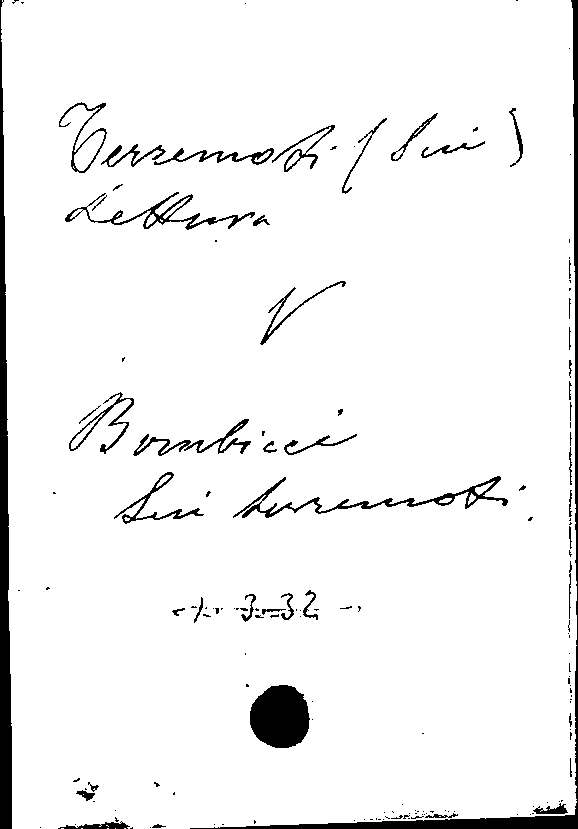 Terremoti (Sui)
Lettura
V
Bombicci
Sui terremoti.